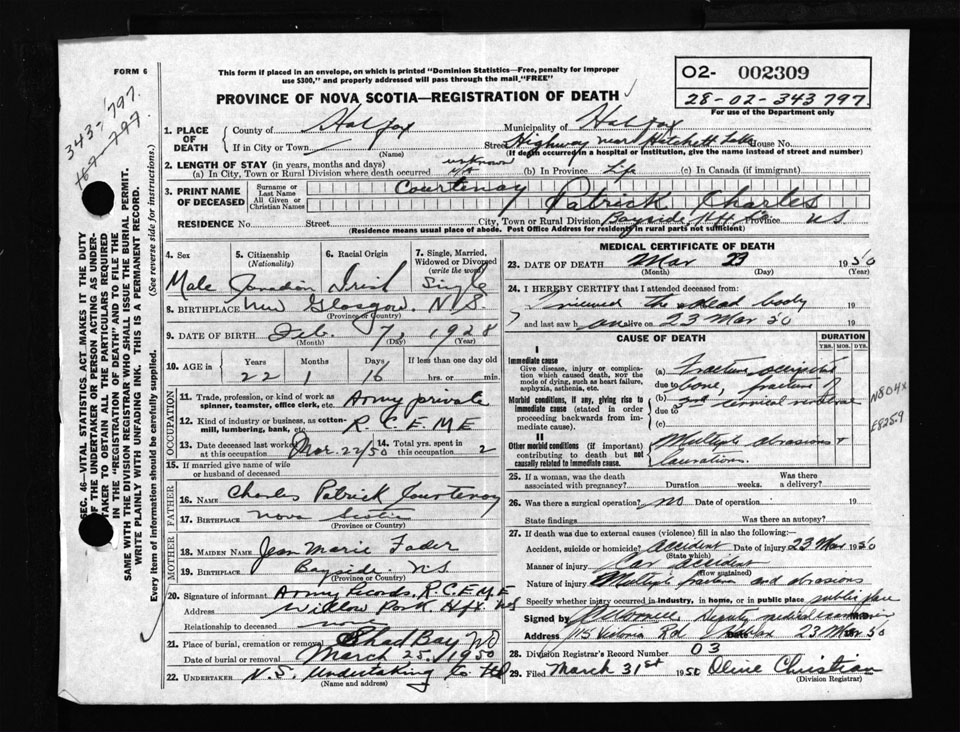 FORM 6
This form if placed in an envelope, on which is printed "Dominion Statistics—Free, penalty for improper
use $300," and properly addressed will pass through the mail "FREE"
PROVINCE OF NOVA SCOTIA—REGISTRATION OF DEATH
02- 002309
28-02-343797.
For use of the Department only
343-797.
1. PLACE OF DEATH
County of Halifax Municipality of Halifax
If in City or Town (Name) Street Highway near Hatchett Lake House No.
(If death occurred in a hospital or institution, give the name instead of street and number)
2. LENGTH OF STAY (in years, months and days)
(a) In City, Town or Rural Division where death occurred unknown (b) In Province Life (c) In Canada (if immigrant)
3. PRINT NAME OF DECEASED
Surname or Last Name Courtenay
All Given or Christian Names Patrick Charles
RESIDENCE No. Street City, Town or Rural Division Bayside Hfx Co Province N.S.
(Residence means usual place of abode. Post Office Address for residents in rural parts not sufficient)
4. Sex Male
5. Citizenship (Nationality) Canadian
6. Racial Origin Irish
7. Single, Married, Widowed or Divorced (write the word) Single
8. BIRTHPLACE New Glasgow, N.S.
(Province or Country)
9. DATE OF BIRTH Feb. 7, 1928
(Month) (Day) (Year)
10. AGE in Years 22 Months 1 Days 16 If less than one day old hrs. or min.
OCCUPATION
11. Trade, profession, or kind of work as spinner, teamster, office clerk, etc. Army private
12. Kind of industry or business, as cotton-mill, lumbering, bank, etc. R.C.E.M.E
13. Date deceased last worked at this occupation Mar. 22/50 14. Total yrs. spent in this occupation 2
15. If married give name of wife or husband of deceased
FATHER
16. NAME Charles Patrick Courtenay
17. BIRTHPLACE Nova Scotia
(Province or Country)
MOTHER
18. MAIDEN NAME Jean Marie Fader
19. BIRTHPLACE Bayside N.S
(Province or Country)
20. Signature of informant Army Records, R.C.E.M.E
Address Willow Park Hfx NS
Relationship to deceased none
21. Place of burial, cremation or removal Shad Bay NS
Date of burial or removal March 25, 1950
22. UNDERTAKER N.S. Undertaking Co Ltd
(Name and address)
MEDICAL CERTIFICATE OF DEATH
23. DATE OF DEATH Mar 23 1950
(Month) (Day) (Year)
24. I HEREBY CERTIFY that I attended deceased from:
I viewed the dead body 19
and last saw h on alive on 23 Mar 50 19
CAUSE OF DEATH
DURATION
YRS. MOS. DYS.
I
Immediate cause
Give disease, injury or complication which caused death, NOT the mode of dying, such as heart failure, asphyxia, asthenia, etc.
(a) Fracture occipital
due to bone, fracture of
Morbid conditions, if any, giving rise to immediate cause (stated in order proceeding backwards from immediate cause).
(b) 2nd cervical vertebrae
due to
(c)
II
Other morbid conditions (if important) contributing to death but not causally related to immediate cause.
Multiple abrasions +
lacerations.
N804x
E825.9
25. If a woman, was the death associated with pregnancy? Duration weeks. Was there a delivery?
26. Was there a surgical operation? no Date of operation 19
State findings Was there an autopsy?
27. If death was due to external causes (violence) fill in also the following:—
Accident, suicide or homicide? Accident Date of injury 23 Mar 1950
(State which)
Manner of injury Car accident
(How sustained)
Nature of injury Multiple fractures and abrasions
Specify whether injury occurred in industry, in home, or in public place public place
Signed by Deputy medical examiner
Address 115 Victoria Rd Halifax 23 Mar 50
28. Division Registrar's Record Number 03
29. Filed March 31st 1950 Olive Christian
(Division Registrar)
SEC. 46—VITAL STATISTICS ACT MAKES IT THE DUTY
OF THE UNDERTAKER OR PERSON ACTING AS UNDER-
TAKER TO OBTAIN ALL THE PARTICULARS REQUIRED
IN THE "REGISTRATION OF DEATH" AND TO FILE THE
SAME WITH THE DIVISION REGISTRAR WHO SHALL ISSUE THE BURIAL PERMIT.
WRITE PLAINLY WITH UNFADING INK. THIS IS A PERMANENT RECORD.
Every item of information should be carefully supplied. (See reverse side for instructions.)